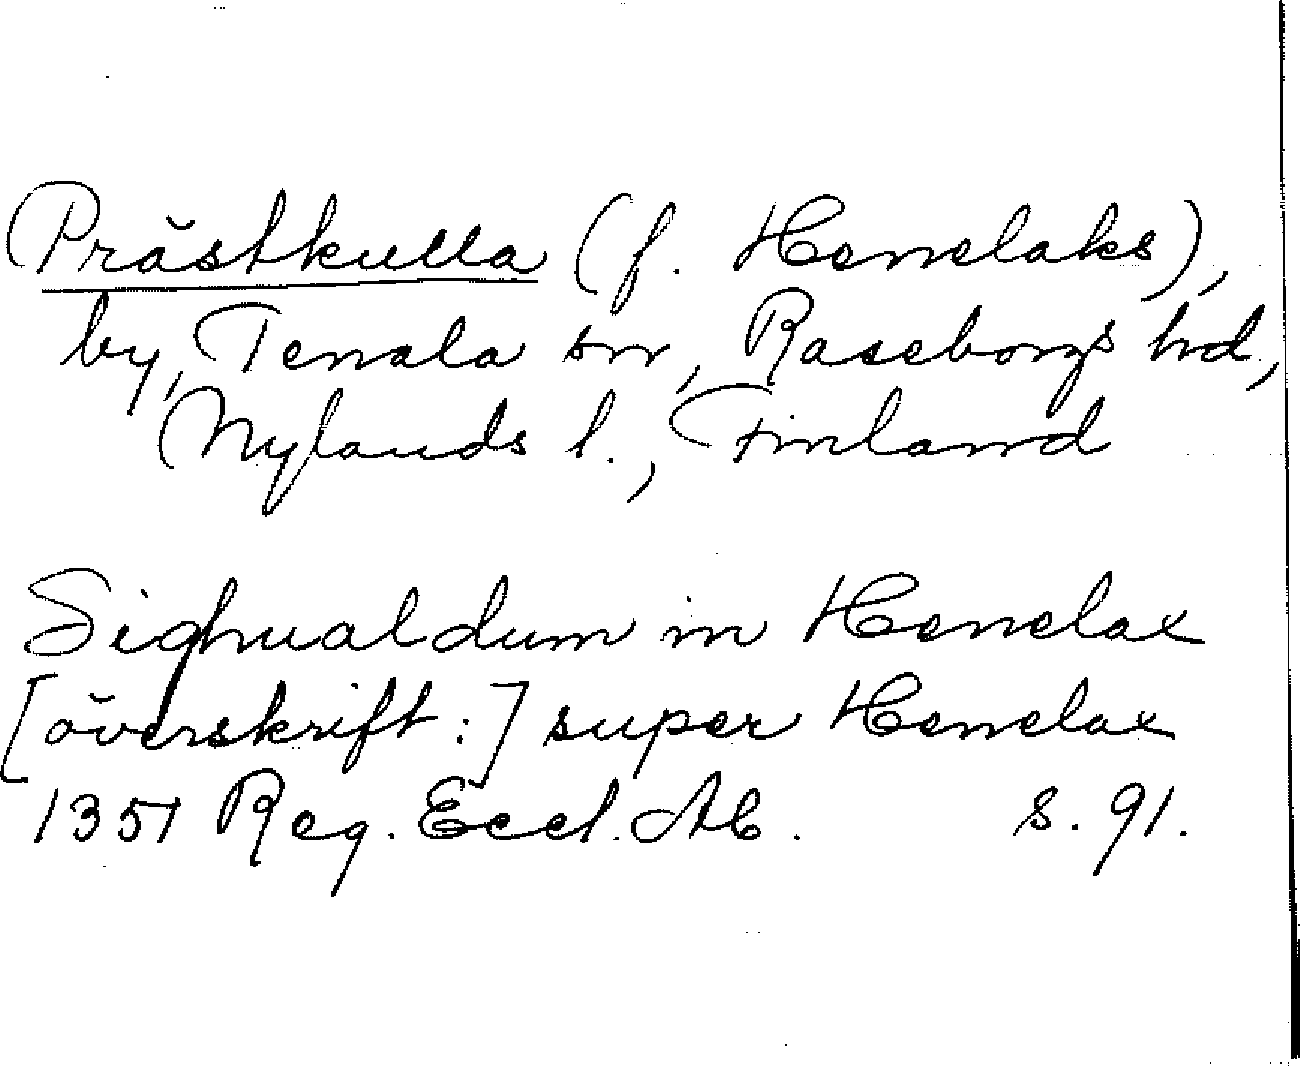 Prästkulla (f. Henelaks),
by, Tenala sn, Raseborgs hd,
Nylands l., Finland
Sighualdum in Henelax
[överskrift:] super Henelax
1351 Reg. Eccl. Ab. s. 91.